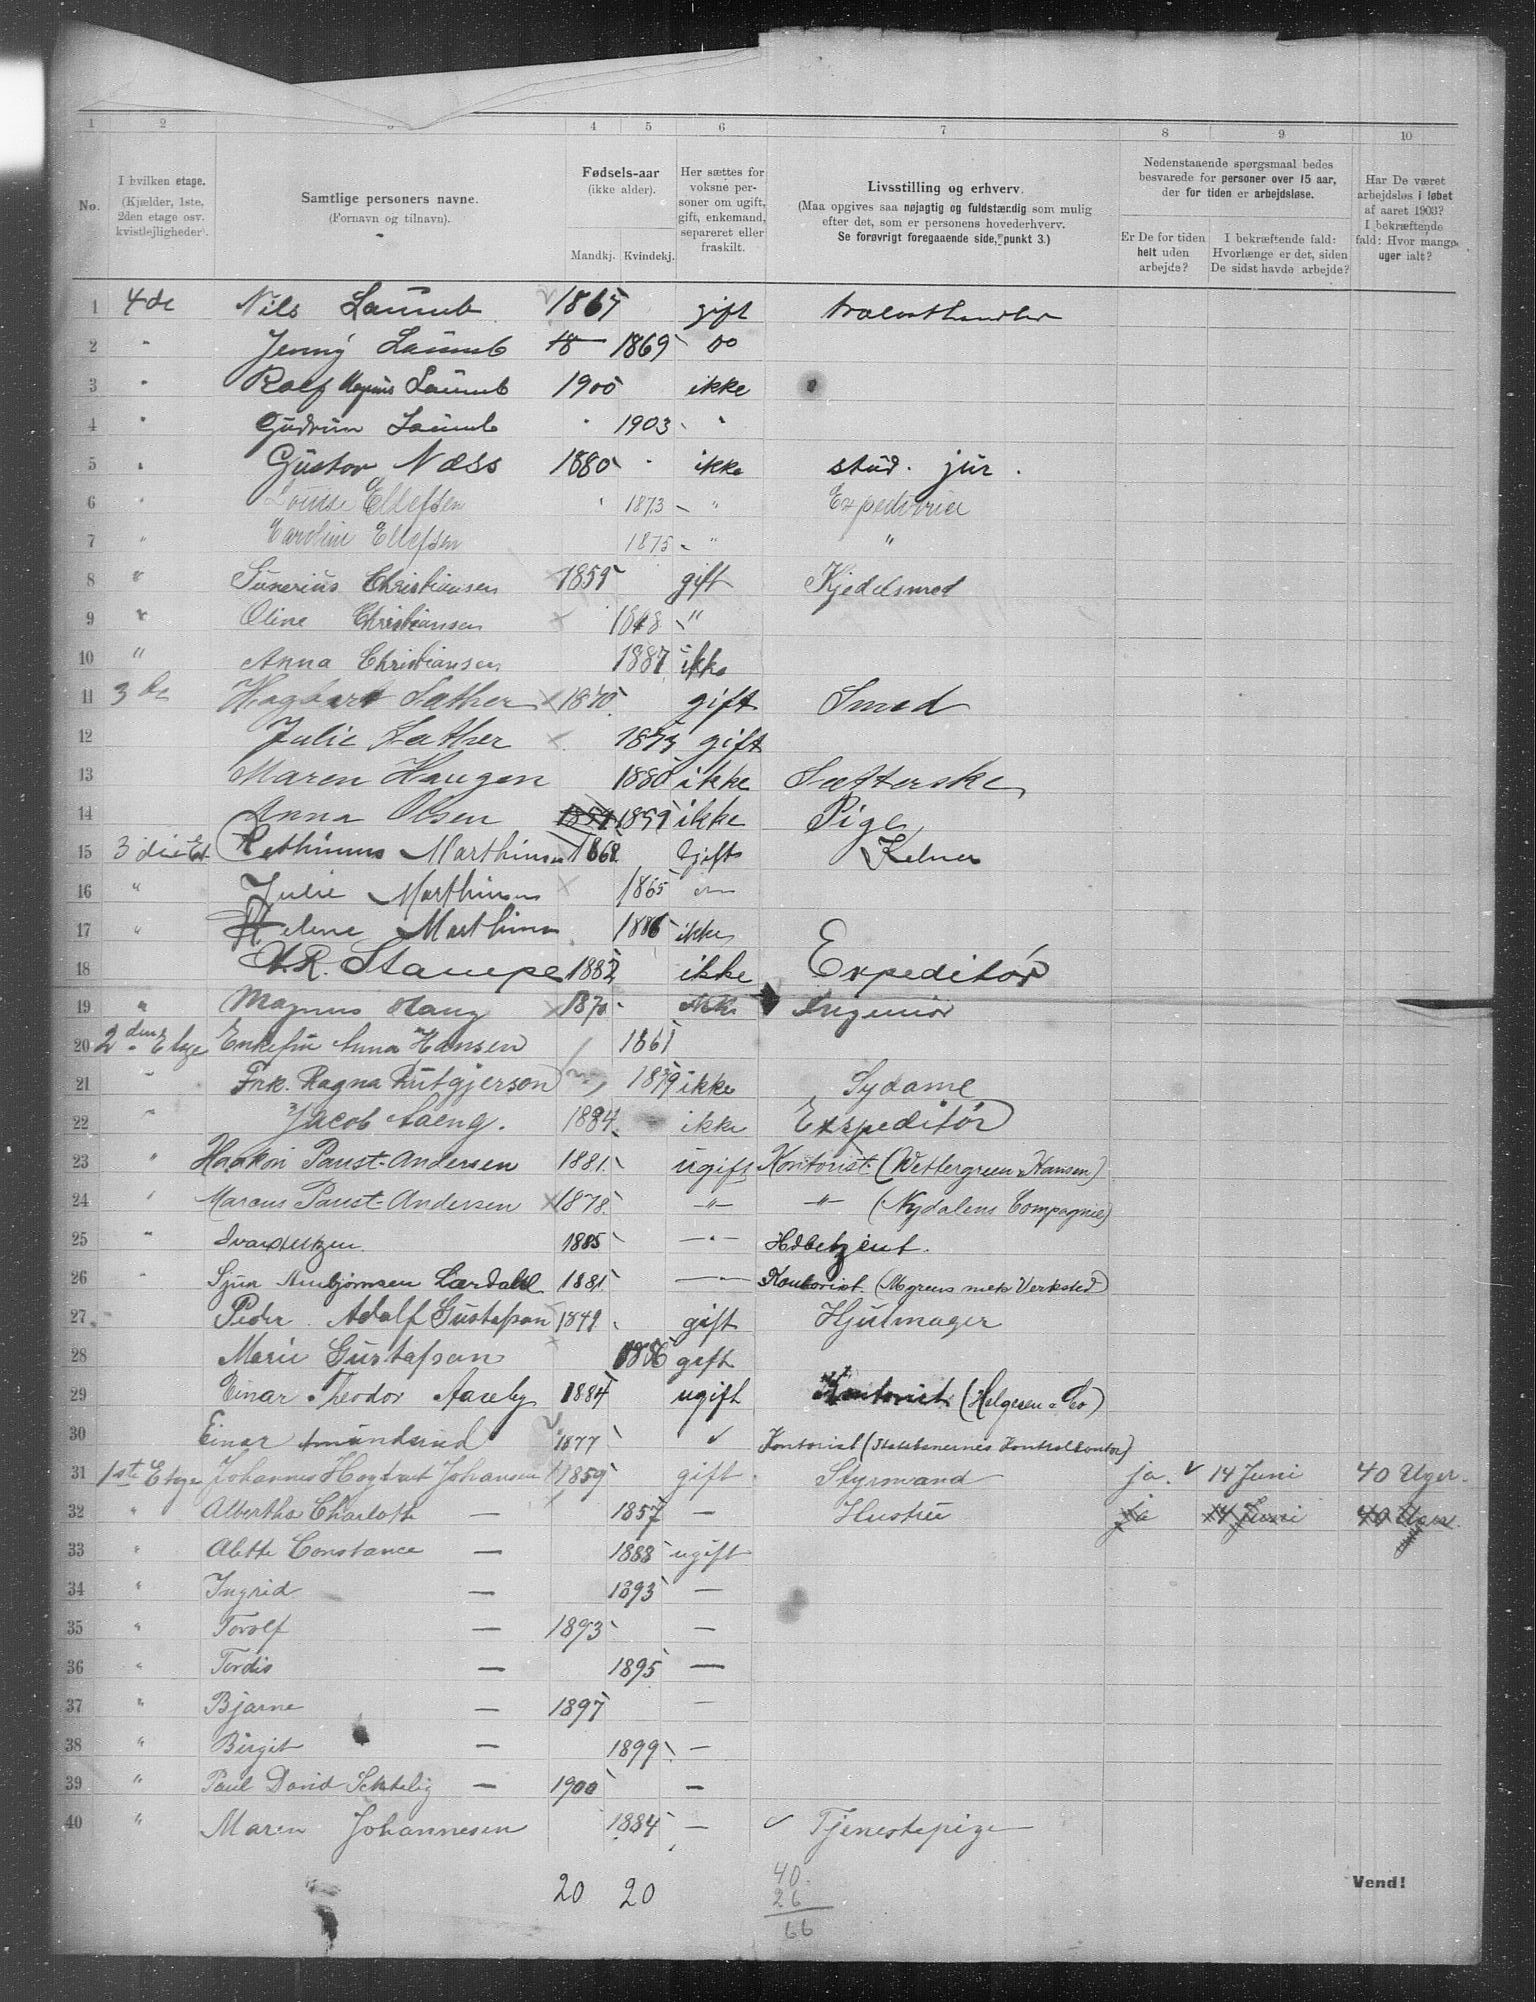 1 2 3 4 5 6 7 8 9 10
No.
I hvilken etage. (Kjælder, 1ste, 2den etage osv. kvistlejligheder).
Samtlige personers navne. (Fornavn og tilnavn).
Fødsels-aar (ikke alder).
Mandkj. Kvindekj.
Her sættes for voksne personer om ugift, gift, enkemand, separeret eller fraskilt.
Livsstilling og erhverv.
(Maa opgives saa nøjagtig og fuldstændig som mulig efter det, som er personens hovederhverv.
Se forøvrigt foregaaende side, punkt 3.)
Nedenstaaende spørgsmaal bedes besvarede for personer over 15 aar, der for tiden er arbejdsløse.
Er De for tiden helt uden arbejde?
I bekræftende fald: Hvorlænge er det, siden De sidst havde arbejde?
Har De været arbejdsløs i løbet af aaret 1903? I bekræftende fald: Hvor mange uger ialt?
1 4de Nils Laumb 1867 gift trælasthandler
2 " Jenny Laumb 18 1869 do
3 " Rolf Magnus Laumb 1900 ikke
4 " Gudrun Laumb " 1903 "
5 " Gustav Næss 1880 " ikke stud. jur.
6 " Louise Ellefsen " 1873 " Expeditrice
7 " Caroline Ellefsen 1875 " "
8 " Christiansen 1855 gift Kjedelsmed
9 " Oline Christiansen 1848 "
10 " Anna Christiansen 1887 ikke
11 3de Hagbart Sæther 1870 gift Smed
12 Julie Sæther 1873 gift
13 Maren Haugen 1880 ikke
14 Anna Olsen 1859 1859 ikke Pige
15 3die Et. Marthinsen 1868 Gift Kelner
16 " Julie Marthinsen 1865
17 " Helene Marthinsen 1886 ikke
18 Stampe 1882 ikke Expeditør
19 " Magnus Haug 1870 ikke Ingeniør
20 2den Etage Enkefru Anna Hansen 1861
21 " Frk. Ragna Rutgjerson 1879 ikke Sydame
22 " Jacob Saeng. 1884 ikke Expeditør
23 " Haakon Paust-Andersen 1881 ugift Kontorist (Wettergreen & Hansen)
24 " Marcus Paust-Andersen 1878 " " (Nydalens Compagnie)
25 " 1885 " Hdbetjent.
26 " Arnbjørnsen Lærdahl 1881 " Kontorist. (Myrens mek Verksted)
27 " Peder Adolf Gustafson 1849 gift Hjulmager
28 Marie Gustafson 1856 gift
29 Einar Theodor Aaseby 1884 ugift Kontorist (Helgesen & Co)
30 Einar Amundsrud 1877 Kontorist (Statsbanernes Kontrolkontor)
31 1ste Etage Johannes Hagbart Johansen 1859 gift Styrmand ja. 14 Juni 40 Uger.
32 " Albertha Charlotte — 1857 — Hustru ja 14 Juni 40 Uger.
33 " Alette Constance — 1888 ugift
34 " Ingrid — 1893 —
35 " Torolf — 1893 —
36 " Tordis — 1895 —
37 " Bjarne — 1897 —
38 " Birgit — 1899 —
39 " Paul David — 1900 —
40 " Maren Johannesen 1884 — Tjenestepige
20 20
40
26
66
Vend!